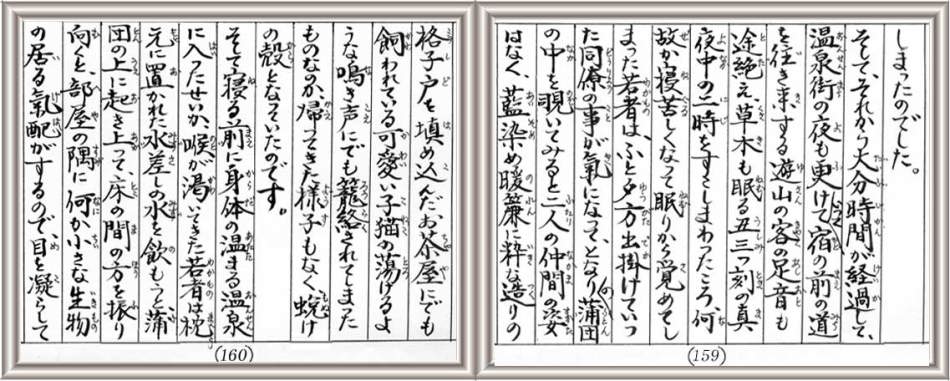 しまったのでした。
そして、それから大分時間が経過して、
温泉街の夜も更けて宿の前の道
を往き来する遊山の客の足音も
途絶え草木も眠る丑三つ刻の真
夜中の二時をすこしまわったころ、何
故か寝苦しくなって眠りから覚めてし
まった若者は、ふと夕方出掛けていっ
た同僚の事が氣になって、となりの蒲団
の中を覗いてみると二人の仲間の姿
はなく、藍染め暖簾に粋な造りの
(159)
格子戸を填め込んだお茶屋にでも
飼われている可愛い子猫の蕩けるよ
うな鳴き声にでも籠絡されてしまった
ものなのか、帰ってきた様子もなく、蛻け
の殻となっていたのです。
そして寝る前に身体の温まる温泉
に入ったせいか、喉が渇いてきた若者は枕
元に置かれた水差しの水を飲もうと蒲
団の上に起き上って、床の間の方を振り
向くと、部屋の隅に何か小さな生物
の居る氣配がするので、目を凝らして
(160)